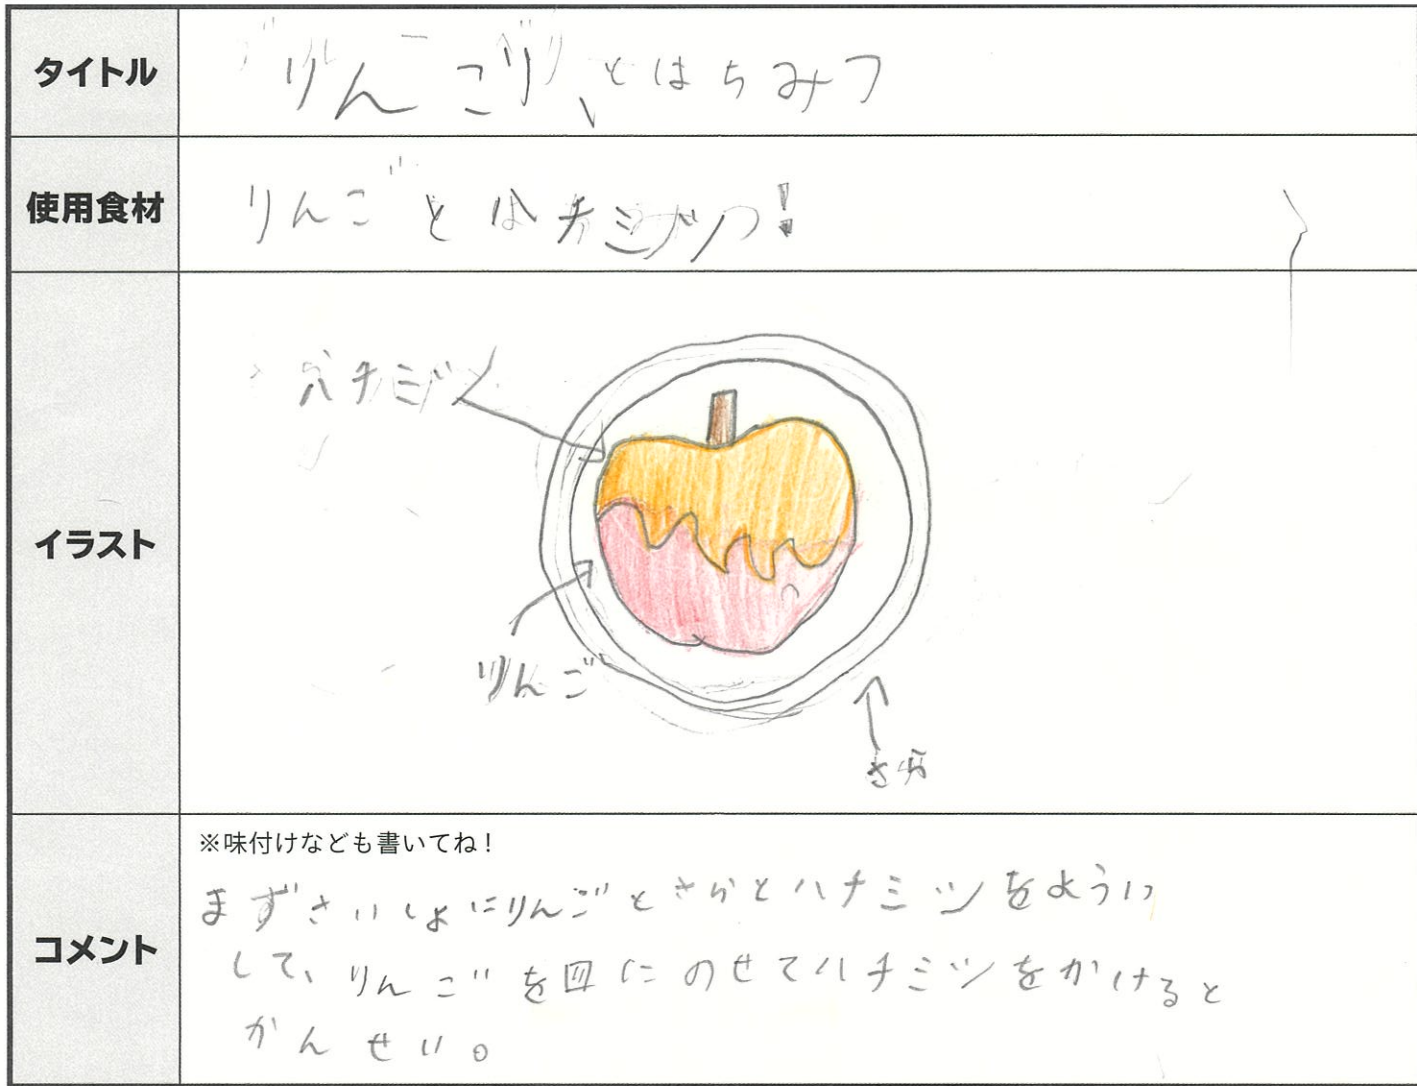 タイトル
りんご、とはちみつ
使用食材
りんごとはチミツ!
イラスト
ハチミツ
りんご
さら
コメント
※味付けなども書いてね!
まずさいしょにりんごとさらとハチミツをようい
して、りんごを皿にのせてハチミツをかけると
かんせい。